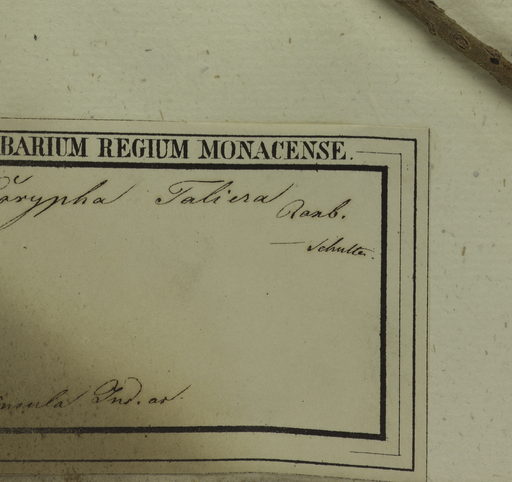 BARIUM REGIUM MONACENSE.
Corypha Taliera Roxb.
— Schultes.
insula Ind. or.